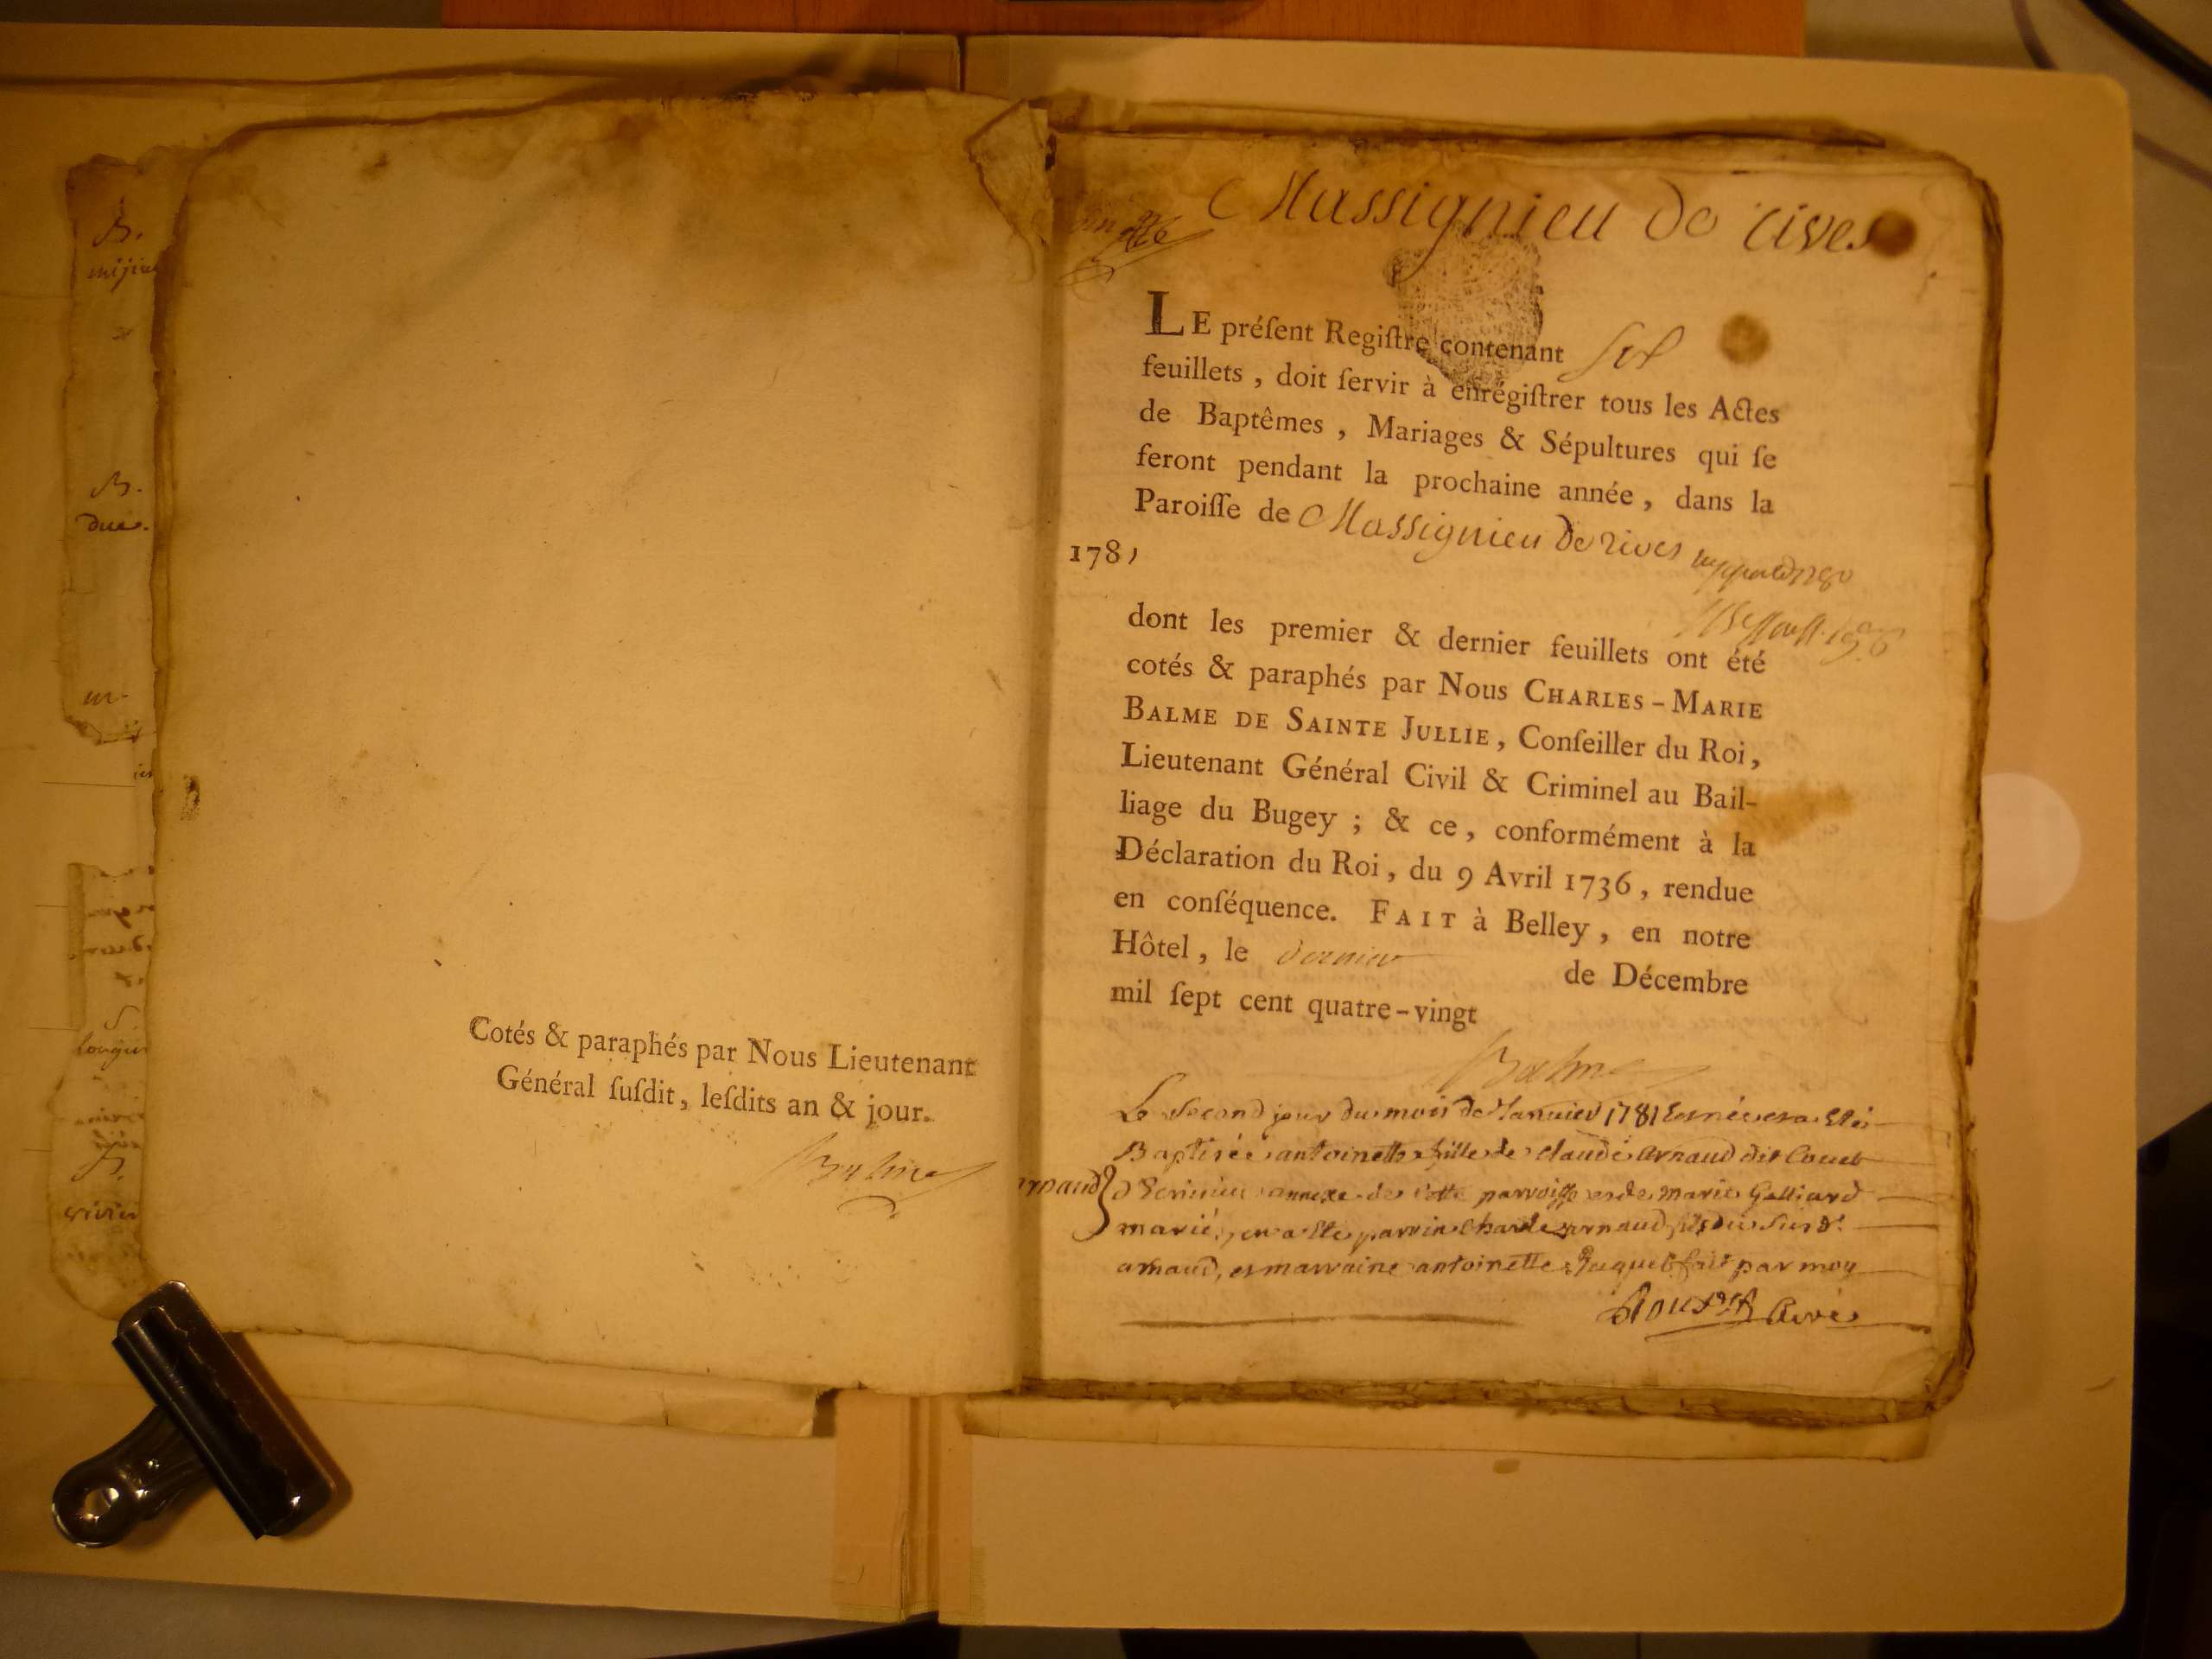 B.
B.
due.
S
B.
Cotés & paraphés par Nous Lieutenant
Général ſuſdit, leſdits an & jour.
Balme
Massignieu de rives
LE préſent Regiſtre contenant
feuillets, doit ſervir à enrégiſtrer tous les Actes
de Baptêmes, Mariages & Sépultures qui ſe
feront pendant la prochaine année, dans la
Paroiſſe de Massignieu de rives
1781
dont les premier & dernier feuillets ont été
cotés & paraphés par Nous CHARLES-MARIE
BALME DE SAINTE JULLIE, Conſeiller du Roi,
Lieutenant Général Civil & Criminel au Bail-
liage du Bugey; & ce, conformément à la
Déclaration du Roi, du 9 Avril 1736, rendue
en conſéquence. FAIT à Belley, en notre
Hôtel, le dernier de Décembre
mil ſept cent quatre-vingt
Balme
Le Second jour du mois de Janvier 1781 est née et a etée
Baptisée antoinette fille de claude arnaud dit Couet
arnaud annexe de cette parroisse et de marie Galliard
mariés, en a ete parrin Charle arnaud fils du Susd.
arnaud, et marraine antoinette fait par moy
Curé